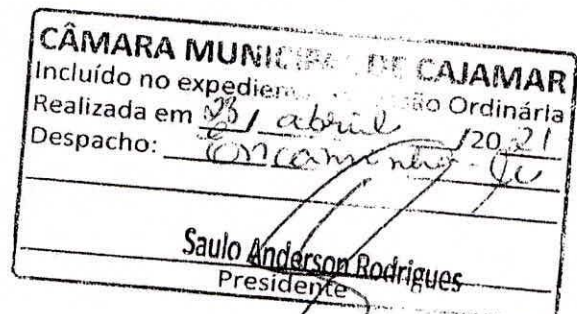 CÂMARA MUNICIPAL DE CAJAMAR
Incluído no expediente Sessão Ordinária
Realizada em / abril /2021
Despacho: encaminhe-se
Saulo Anderson Rodrigues
Presidente